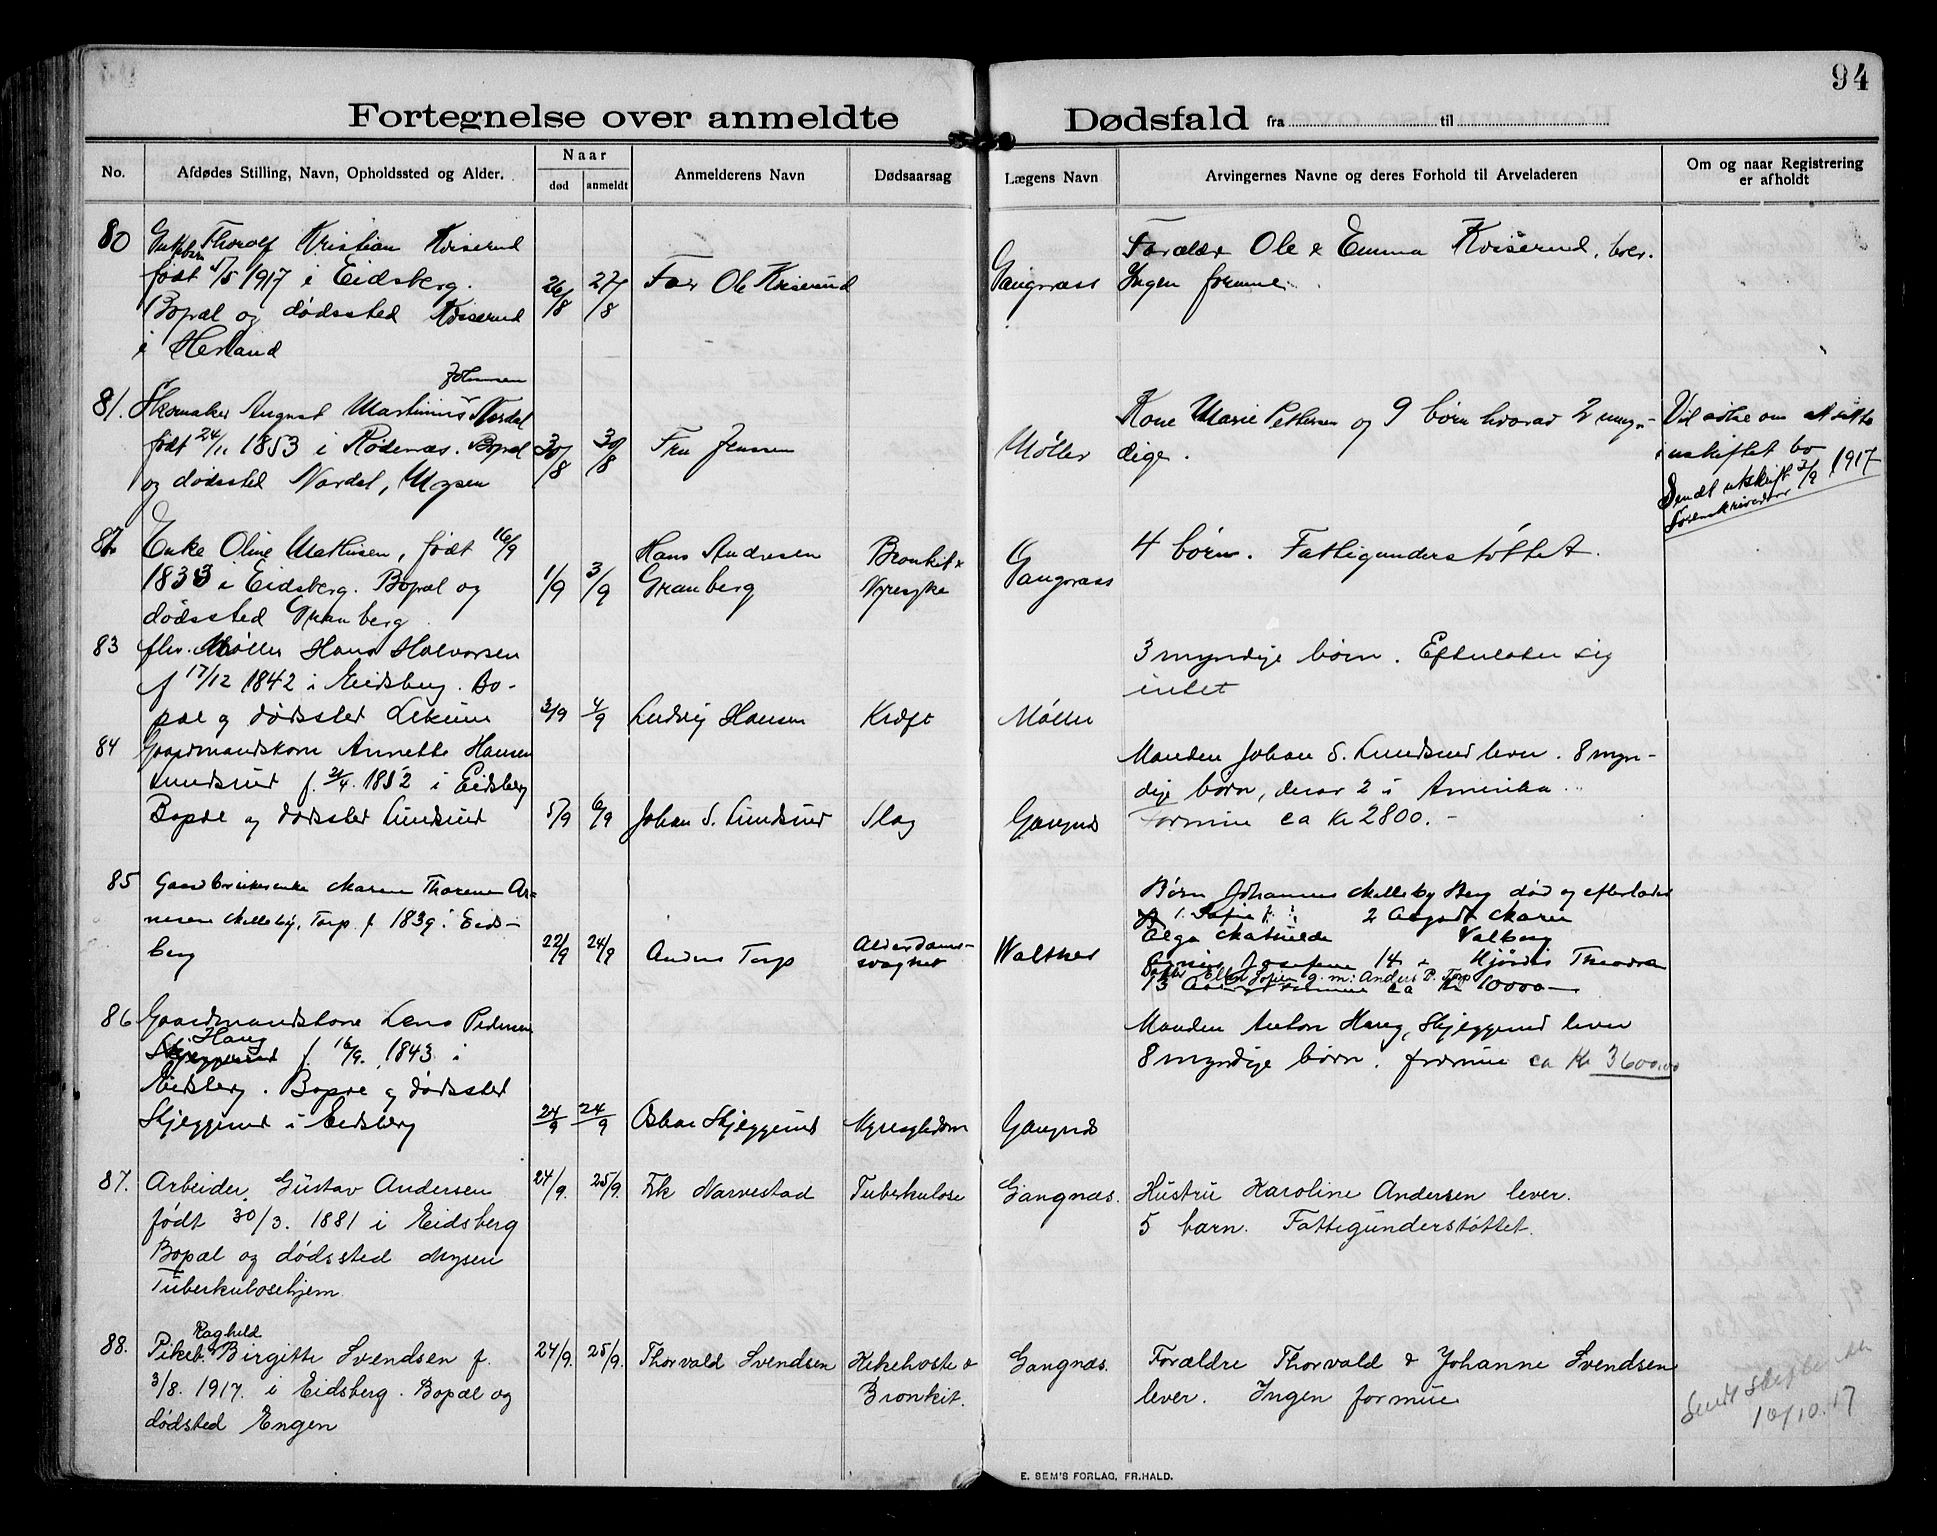 94
Fortegnelse over anmeldte Dødsfald fra til
No.
Afdødes Stilling, Navn, Opholdssted og Alder.
Naar
død
anmeldt
Anmelderens Navn
Dødsaarsag
Lægens Navn
Arvingernes Navne og deres Forhold til Arveladeren
Om og naar Registrering
er afholdt
80
Thorolf Kristian Kviserud
født 5/5 1917 i Eidsberg.
Bopæl og dødssted Kviserud
i Herland
26/8
27/8
Far Ole Kviserud
Gangnæss
Forældre Ole & Emma Kviserud, lever.
Ingen formue.
81.
Johnsen
Skomaker August Martinius Nordal
født 24/11 1853 i Rødenæs. Bopæl
og dødssted Nordal, Mysen
30/8
30/8
Fru Jensen
Møller
Kone Marie Pettersen og 9 børn hvorav 2 umyn-
dige.
Vil søke om at sitte
i uskiftet bo
Sendt utskift 3/9 1917
Sorenskriveren
82
Enke Oline Mathisen, født 16/9
1833 i Eidsberg. Bopæl og
dødssted Granberg
1/9
3/9
Hans Andresen
Granberg
Bronkit &
Nyresyke
Gangnæss
4 børn. Fattigunderstøttet.
83
flv. Møller Hans Halvorsen
f 17/12 1842 i Eidsberg. Bo-
pæl og dødssted Lekum
3/9
4/9
Ludvig Hansen
Kræft
Møller
3 myndige børn. Efterlater sig
intet
84
Gaardmandskone Annette Hansen
Lundsrud f. 21/4. 1852 i Eidsberg
Bopæl og dødssted Lundsrud
5/9
6/9
Johan S. Lundsrud
Slag
Gangnæs
Manden Johan S. Lundsrud lever. 8 myn-
dige børn, derav 2 i Amerika.
Formue ca Kr 2800.-
85
Gaardbrukerenke Maren Thorene Ar-
nesen Melleby, Torp f 1839 i Eids-
berg
22/9
24/9
Anders Torp
Alderdoms-
svaghet
Walther
Børn Johannes Melleby Berg død og efterlader
1. Sofie 2 Aagodt Maren
Olga Mathilde Valborg
Josefine 14 Hjørdis Theodora
Datter Ellen Sofie g. m: Anders P. Torp
formue ca Kr 10000-
86
Gaardmandskone Lena Pedersen
Haug
Skjeggerud f 16/9. 1843 i
Eidsberg. Bopæl og dødssted
Skjeggerud i Eidsberg
24/9
24/9
Oskar Skjeggerud
Nyresykdom
Gangnæs
Manden Anton Haug, Skjeggerud lever
8 myndige børn. formue ca Kr 3600.00
87.
Arbeider Gustav Andersen
født 30/3. 1881 i Eidsberg
Bopæl og dødssted Mysen
Tuberkulosehjem
24/9.
25/9.
Frk Narvestad
Tuberkulose
Gangnæs.
Hustru Karoline Andersen lever.
5 barn. Fattigunderstøttet.
88.
Raghild
Pikeb. Birgitte Svendsen f.
3/8. 1917. i Eidsberg. Bopæl og
dødsted Engen
24/9.
25/9.
Thorvald Svendsen
Kikehoste &
Bronkit.
Gangnæs.
Forældre Thorvald & Johanne Svendsen
lever. Ingen formue
Sendt
10/10.17
E. SEM'S FORLAG, FR.HALD.